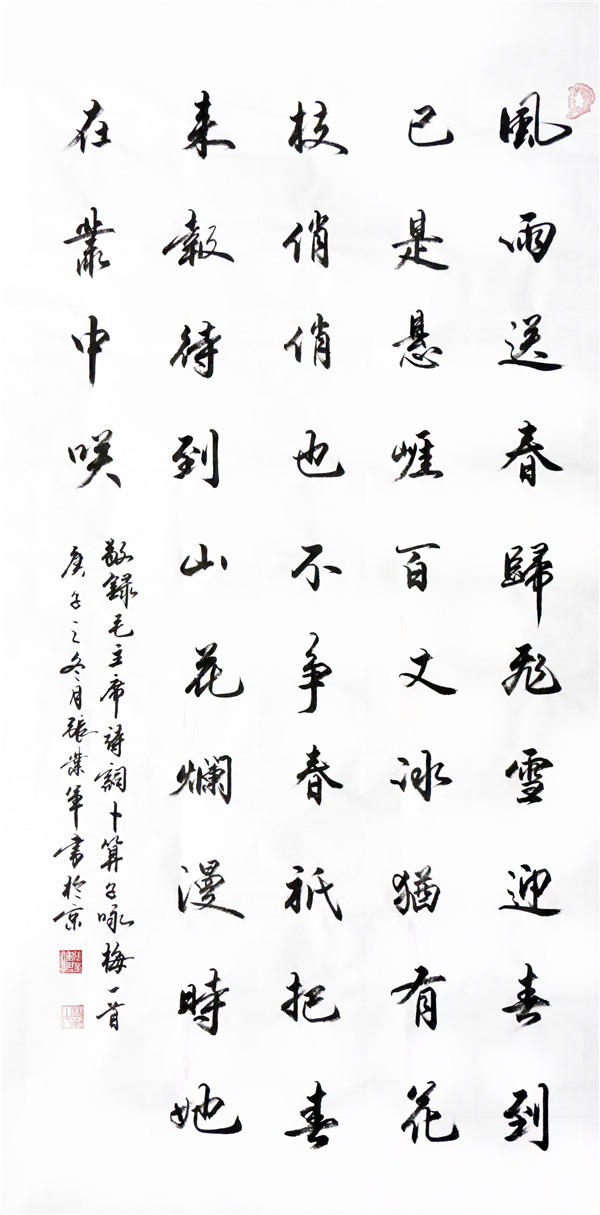 風雨送春歸飛雪迎春到
已是悬崖百丈冰猶有花
枝俏俏也不争春祇把春
来報待到山花爛漫時她
在叢中咲
敬録毛主席詩詞卜算子咏梅一首
庚子之冬月張業軍書於京